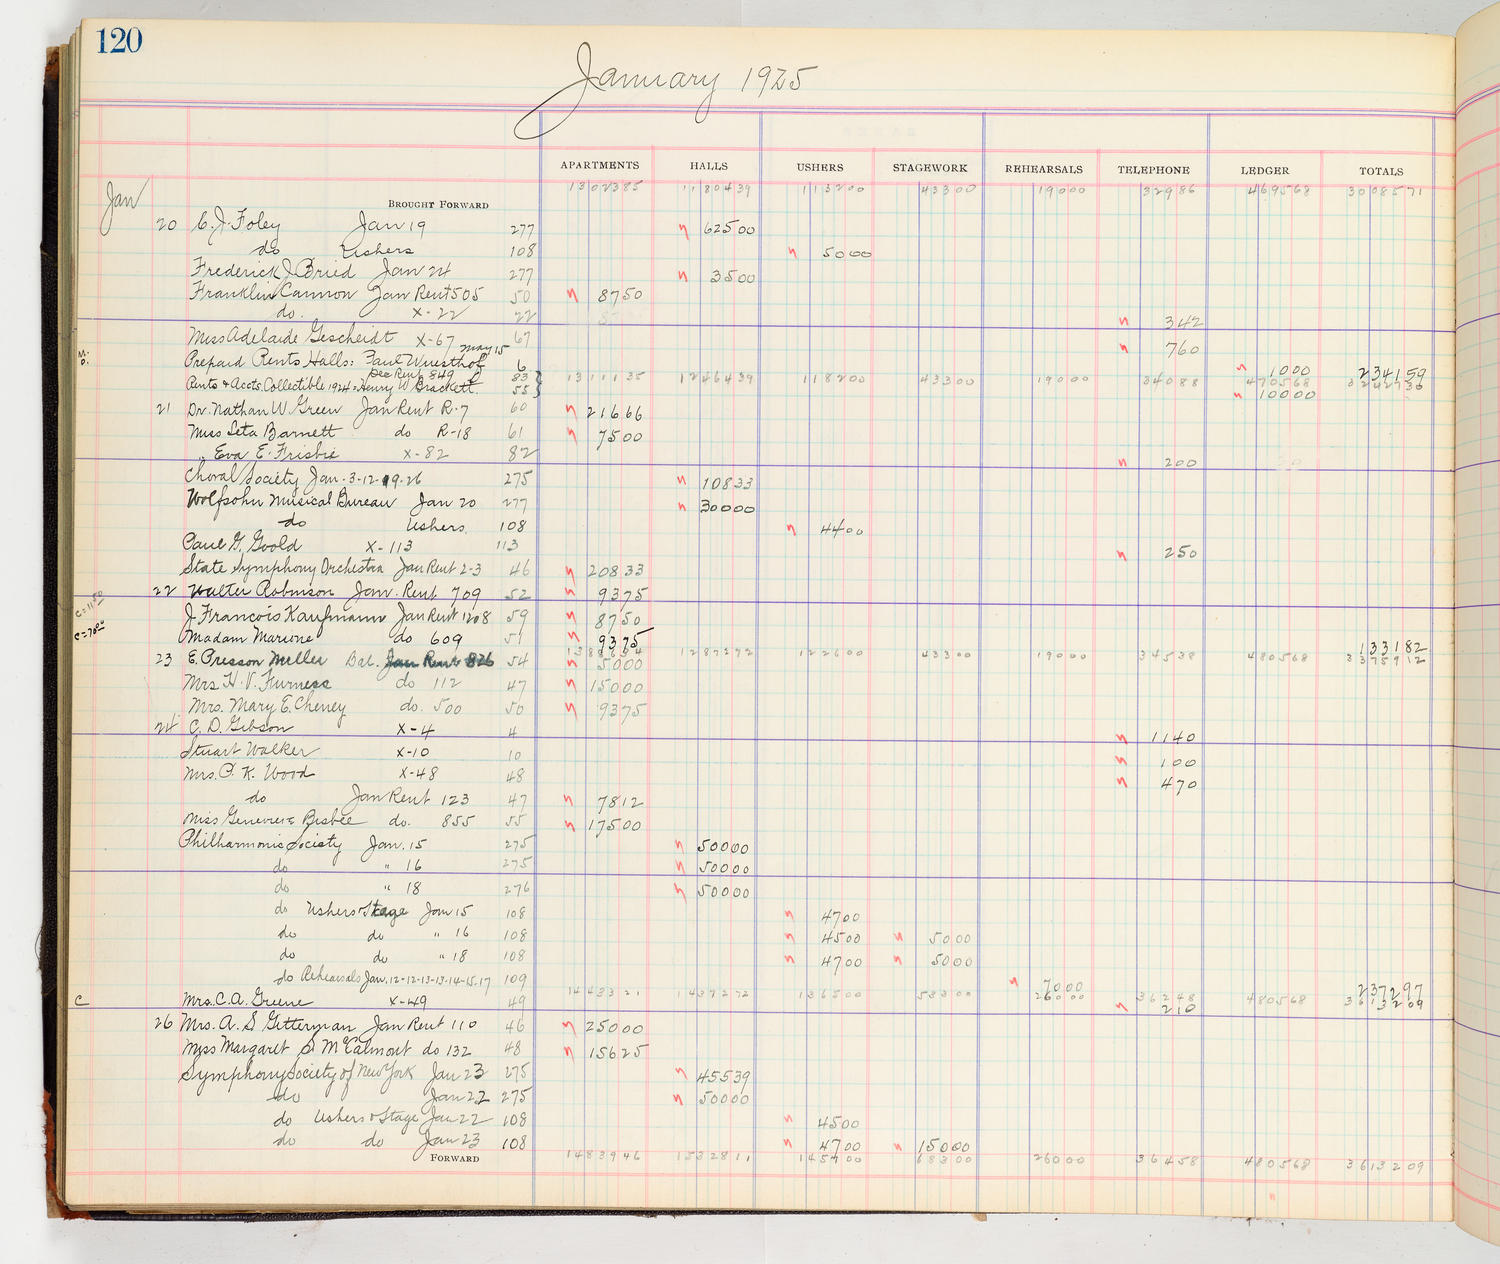 120
January 1925
APARTMENTS HALLS USHERS STAGEWORK REHEARSALS TELEPHONE LEDGER TOTALS
Jan BROUGHT FORWARD 1302385 1180439 113200 43300 19000 32986 469568 3008571
20 E. J. Foley Jan 19 277 62500
do Ushers 108 5000
Frederick J Bried Jan 24 277 3500
Franklin Cannon Jan Rent 505 50 8750
do. X-22 22 342
Miss Adelaide Gescheidt X-67 67 760
Prepaid Rents Halls: Paul Wuesthof May 15 6 1000 234159
Dec Rent 849 83 1311135 1246439 118200 43300 19000 34088 470568 3242730
Rents & Accts. Collectible 1924 = Henry W Brackett 55 10000
21 Dr. Nathan W. Green Jan Rent R-7 60 21666
Miss Leta Barnett do R-18 61 7500
" Eva E. Frisbie X-82 82 200
Choral Society Jan-3-12-19-26 275 10833
Wolfsohn Musical Bureau Jan 20 277 30000
do Ushers. 108 4400
Paul G. Goold X-113 113 250
State Symphony Orchestra Jan Rent 2-3 46 20833
22 Walter Robinson Jan. Rent 709 52 9375
J. Francois Kaufmann Jan Rent 1208 59 8750
Madam Marione do 609 51 9375 133182
1388654 1287272 122600 43300 19000 34538 480568 3375912
23 E. Presson Miller Bal. Jan Rent 826 54 5000
Mrs H. V. Furness do 112 47 15000
Mrs. Mary E. Cheney do. 500 50 9375
24 C. D. Gibson X-4 4 1140
Stuart Walker X-10 10 100
Mrs. C. K. Wood X-48 48 470
do Jan Rent 123 47 7812
Miss Genevieve Bisbee do. 855 55 17500
Philharmonic Society Jan. 15 275 50000
do " 16 275 50000
do " 18 276 50000
do Ushers & Stage Jan 15 108 4700
do do " 16 108 4500 5000
do do " 18 108 4700 5000
do Rehearsals Jan. 12-12-13-13-14-15-17 109 7000 237297
1443321 1437272 136500 53300 26000 36248 480568 3613209
C Mrs. C. A. Greene X-49 49 210
26 Mrs. A. S Gitterman Jan Rent 110 46 25000
Miss Margaret S. McCalmont do 132 48 15625
Symphony Society of New York Jan 23 275 45539
do Jan 22 275 50000
do Ushers & Stage Jan 22 108 4500
do do Jan 23 108 4700 15000
FORWARD 1483946 1532811 145700 68300 26000 36458 480568 3613209